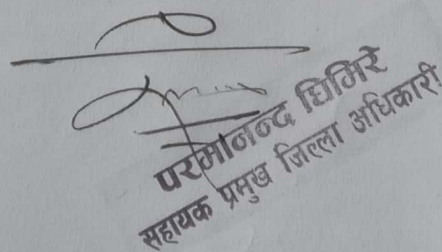 परमानन्द घिमिरे
सहायक प्रमुख जिल्ला अधिकारी